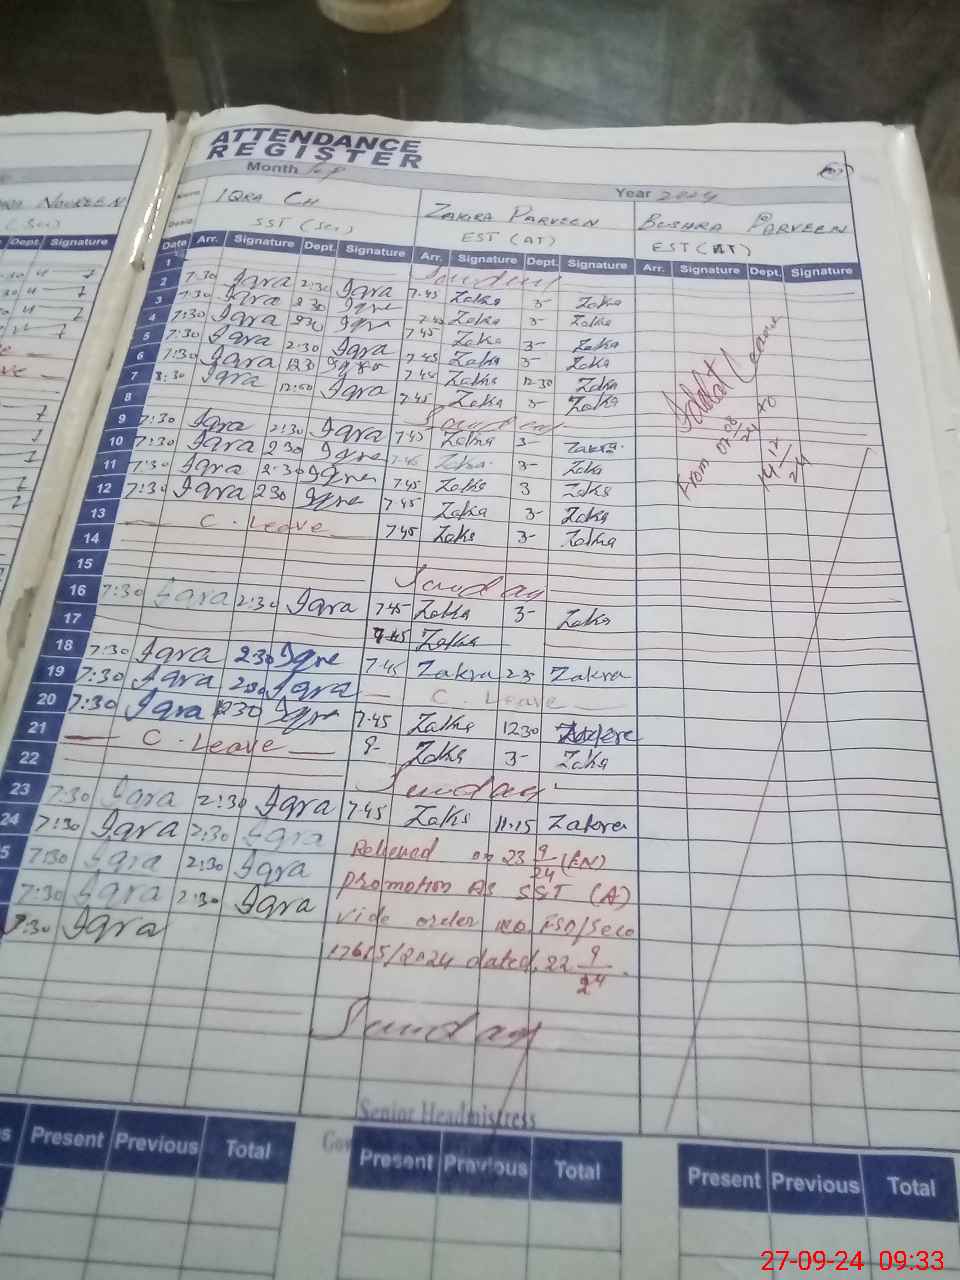 ATTENDANCE
REGISTER
Month Sep
Year 2024
NOUREEN
Name IQRA CH ZAKIRA PARVEEN BUSHRA PARVEEN
SST (Sci) EST (AT) EST (AT)
Dept. Signature
Date Arr. Signature Dept. Signature Arr. Signature Dept. Signature Arr. Signature Dept. Signature
1 Sunday
2 7:30 Iqra 2:30 Iqra 7.45 Zakra 3- Zakra
3 7:30 Iqra 2:30 Iqra 7.45 Zakra 3- Zakra
4 7:30 Iqra 2:30 Iqra 7.45 Zakra 3- Zakra
5 7:30 Iqra 2:30 Iqra 7.45 Zakra 3- Zakra
6 7:30 Iqra 12:30 Iqra 7.45 Zakra 12 30 Zakra
7 8:30 Iqra Iqra 7.45 Zakra 3- Zakra
8 Sunday
9 7:30 Iqra 2:30 Iqra 7.45 Zakra 3- Zakra
10 7:30 Iqra 2 30 Iqra 7.45 Zakra 3- Zakra
11 7:30 Iqra 2:30 Iqra 7.45 Zakra 3 Zakra
12 7:30 Iqra 2 30 Iqra 7.45 Zakra 3- Zakra
13 C. Leave 7.45 Zakra 3- Zakra
14
15 Sunday
16 7:30 Iqra 2:30 Iqra 7.45 Zakra 3- Zakra
17 7.45 Zakra
18 7:30 Iqra 2 30 Iqra 7.45 Zakra Zakra
19 7:30 Iqra 2 30 Iqra C. Leave
20 7:30 Iqra 12 30 Iqra 7.45 Zakra 12 30
21 C. Leave 9- Zakra 3- Zakra
22 Sunday
23 7:30 Iqra 2:30 Iqra 7.45 Zakra 11.15 Zakra
24 7:30 Iqra 2:30 Iqra Relieved on 23 9/24 (FN)
5 7:30 Iqra 2:30 Iqra promotion As SST (A)
7:30 Iqra 2:30 Iqra vide order no
:30 Iqra /2024 dated 22 9/24
Sunday
From
to
Senior Headmistress
Present Previous Total Present Previous Total Present Previous Total
27-09-24 09:33